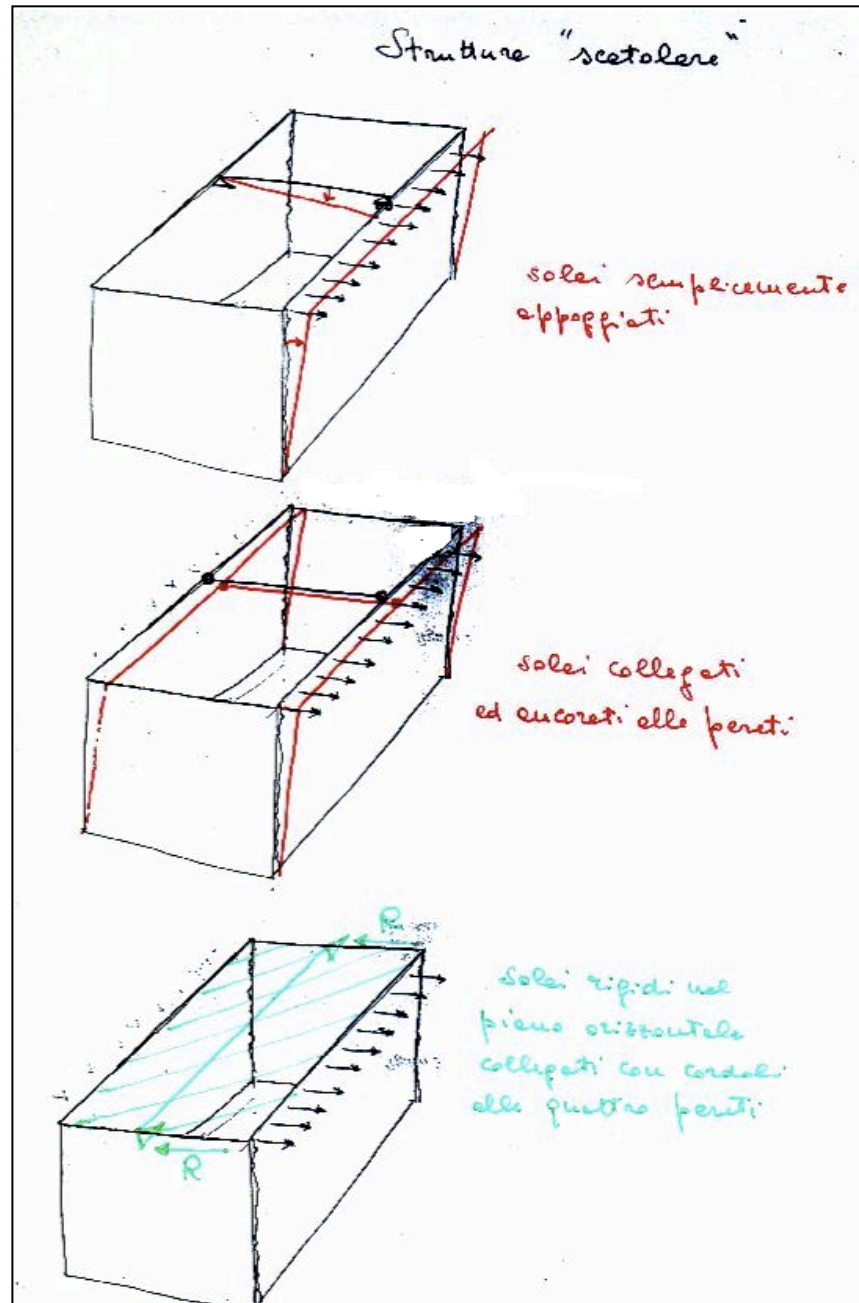 Strutture "scatolare"
solai semplicemente
appoggiati
solai collegati
ed ancorati alle pareti
R
solai rigidi nel
piano orizzontale
collegati con cordoli
alle quattro pareti
R